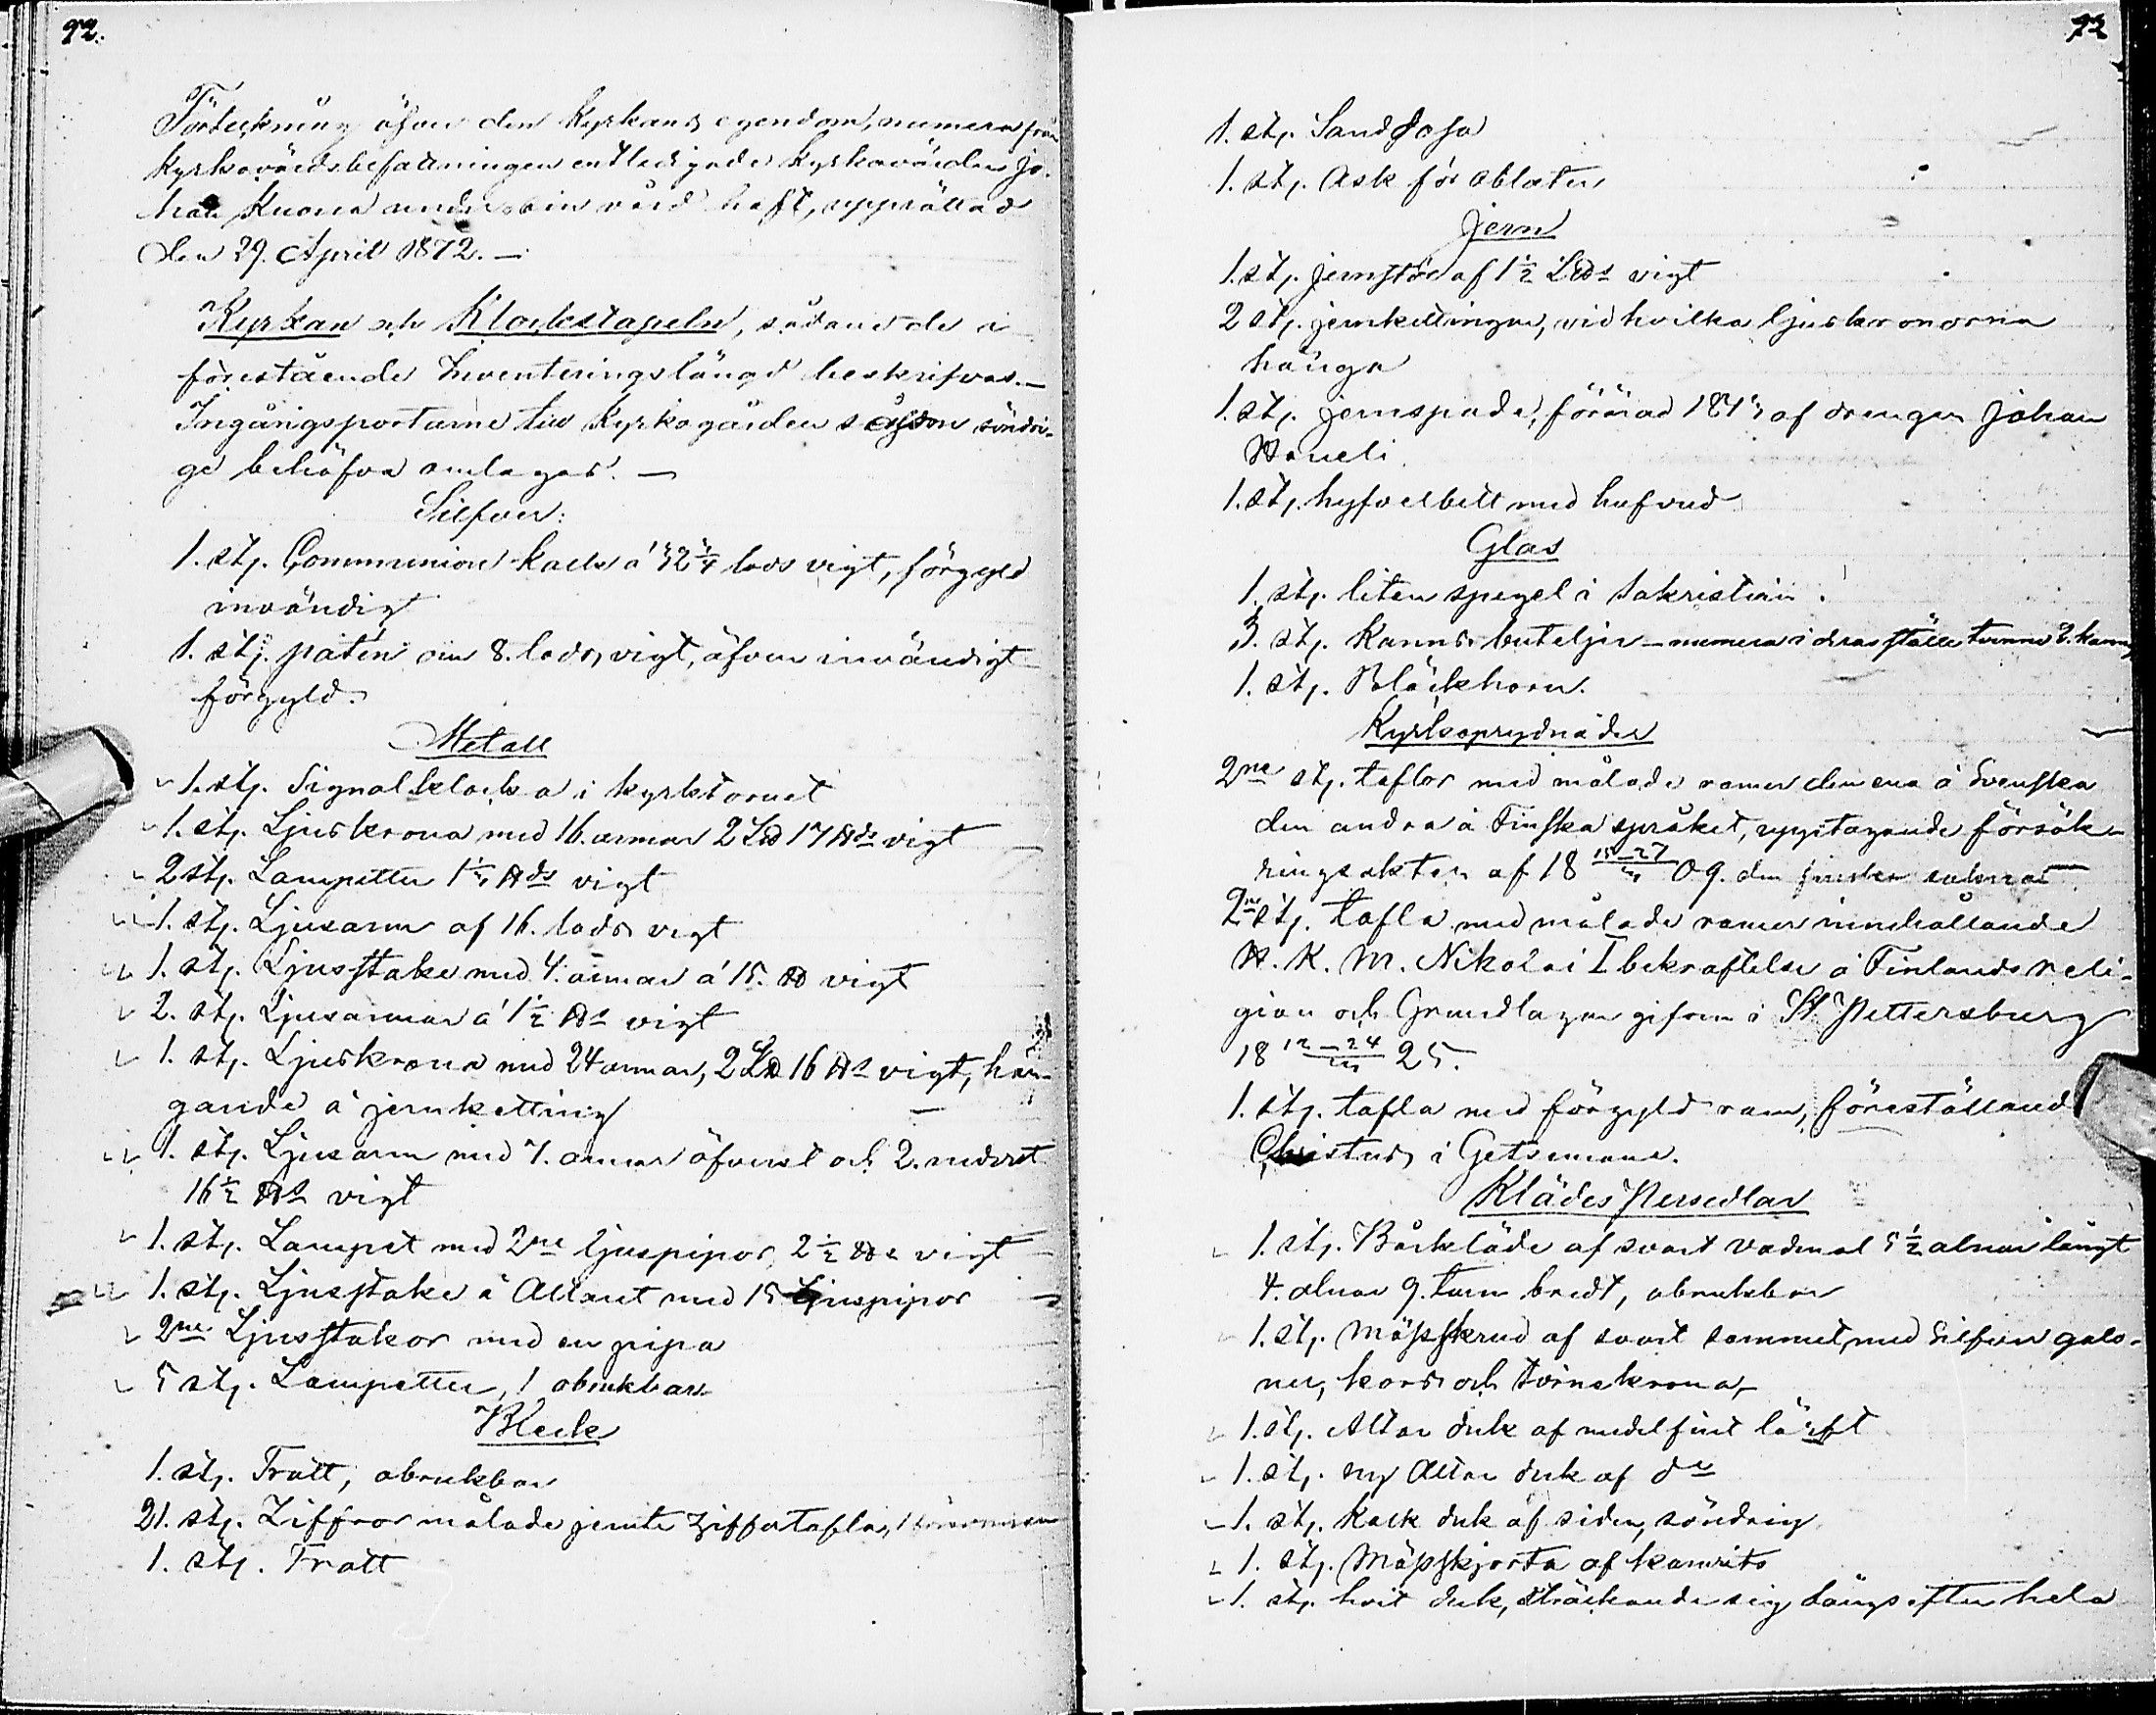 92.
Förteckning öfver den Kyrkans egendom, numera från
kyrkovärdsbefattningen entledigade kyrkovärden Jo-
han Kuona under sin vård haft, upprättad
den 29. April 1872. —
Kyrkan och Klockstapeln, sådane de i
förestående Inventeringslängd beskrifvas. —
Ingångsportarne till Kyrkogården såsom söndri-
ge behöfva omlagas. —
Silfver:
1. stj. Communion kalk á 32 1/4 lods vigt, förgyld
invändigt
1. stj. patén om 8. lods, vigt, äfven invändigt
förgyld.
Metall
1. stj. Signalklocka i kyrktornet
1. stj. Ljuskrona med 16. armar 2 L℔ 17 ℔ds vigt
2 stj. Lampetter 1 1/2 ℔ds vigt
1. stj. Ljusarm af 16. lods vigt
1. stj. Ljusstake med 4. armar á 15. ℔ vigt
2. stj. Ljusarmar á 1 1/2 ℔s vigt
1. stj. Ljuskrona med 24 armar, 2 L℔ 16 ℔s vigt, hän-
gande å jernketting
1. stj. Ljusarm med 7. armar öfverst och 2. nederst
16 1/2 ℔s vigt
1. stj. Lampet med 2ne ljuspipor, 2 1/2 ℔s vigt
1. stj. Ljusstake å Altaret med 15 Ljuspipor
2ne Ljusstakor med en pipa
5 stj. Lampetter, 1 obrukbar
Bleck
1. stj. Tratt, obrukbar
21. stj. Ziffror målade jemte Ziffertafla,
1. stj. Tratt
73
1. stj. Sanddosa
1. stj. Ask för oblater
Jern
1. stj. jernstör af 1 1/2 L℔s vigt
2 stj. jernkettingar, vid hvilka ljuskronorna
hänga
1. stj. jernspade, förärad af drengen Johan
1. stj. hyfvelbett med hufvud
Glas
1. stj. liten spegel i Sakristian.
3. stj. Kanns buteljer – numera i deras ställe tvenne 2. kanns
1. stj. Bläckhorn.
Kyrkoprydnader
2ne stj. taflor med målade ramar den ena å Svenska
den andra å Finska språket, upptagande försäk-
ringsakten af 18 15–27/3 09. den finska saknas
2ne stj. tafla med målade ramar innehållande
H. K. M. Nikolai I bekräftelse å Finlands reli-
gion och Grundlagar gifven i St Pettersburg
18 12–24/12 25.
1. stj. tafla med förgyld ram, föreställand
Christus i Getsemane.
Klädes Persedlar
1. stj. Bårkläde af svart vadmal 5 1/2 alnar långt
4. alnar 9. tum bredt, obrukbar
1. stj. Mässskrud af svart sammet, med Silfver galo-
ner, kors och törnekrona,
1. stj. Altar duk af medelfint lärft
1. stj. ny Altar duk af do
1. stj. kalk duk af siden, söndrig
1. stj. Mässskjorta af kamrito
1. stj. hvit duk, sträckande sig långs efter hela